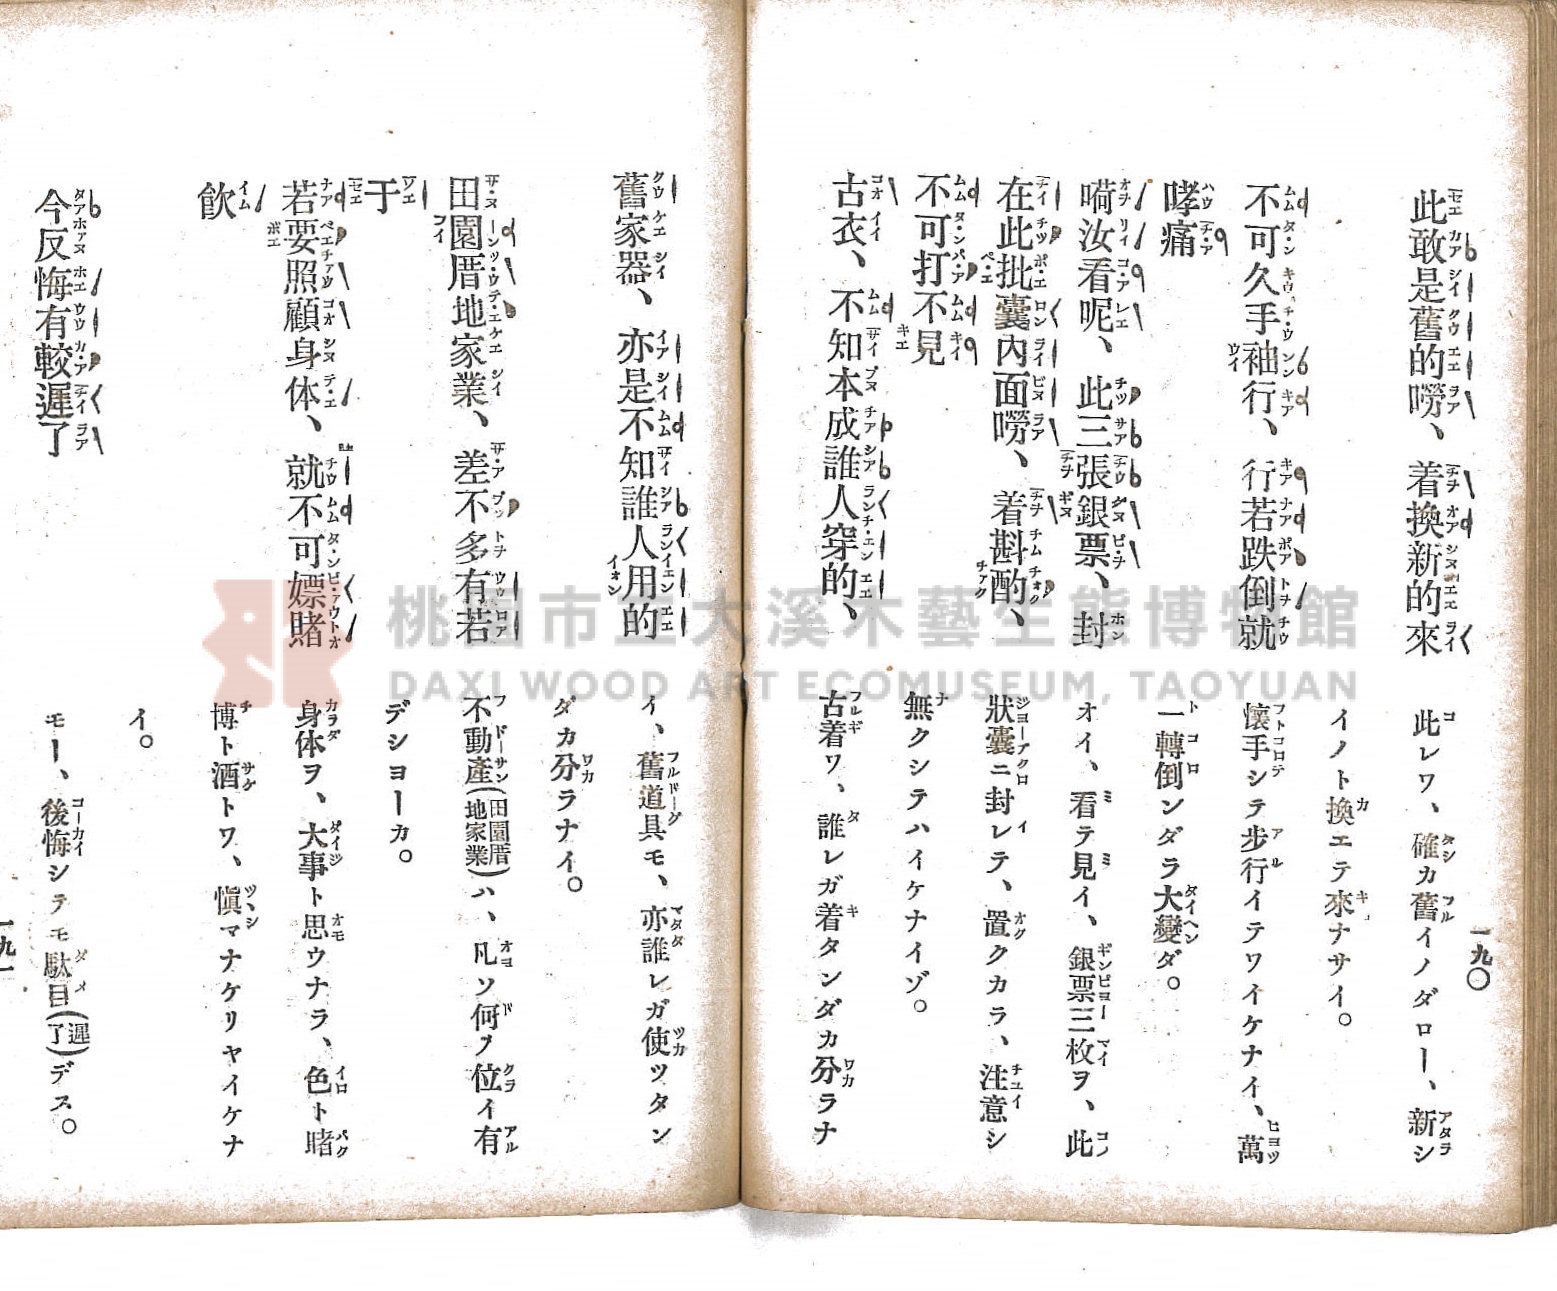 一九〇
此敢是舊的嘮、着換新的來
此レワ、確カ舊イノダロー、新シ
イノト換エテ來ナサイ。
不可久手袖行、行若跌倒就
懷手シテ步行イテワイケナイ、萬
哮痛
一轉倒ンダラ大變ダ。
嗬汝看呢、此三張銀票、封
オイ、看テ見イ、銀票三枚ヲ、此
在此批囊內面嘮、着斟酌、
狀囊ニ封レテ、置クカラ、注意シ
不可打不見
無クシテハイケナイゾ。
古衣、不知本成誰人穿的、
古着ワ、誰レガ着タンダカ分ラナ
舊家器、亦是不知誰人用的
イ、舊道具モ、亦誰レガ使ツタン
ダカ分ラナイ。
田園厝地家業、差不多有若
不動產(田園厝地家業)ハ、凡ソ何ノ位イ有
于
デショーカ。
若要照顧身体、就不可嫖賭
身体ヲ、大事ト思ウナラ、色ト賭
飲
博ト酒トワ、愼マナケリヤイケナ
イ。
今反悔有較遲了
モー、後悔シテモ駄目(遲了)デス。
一九一
桃園市立大溪木藝生態博物館
DAXI WOOD ART ECOMUSEUM, TAOYUAN